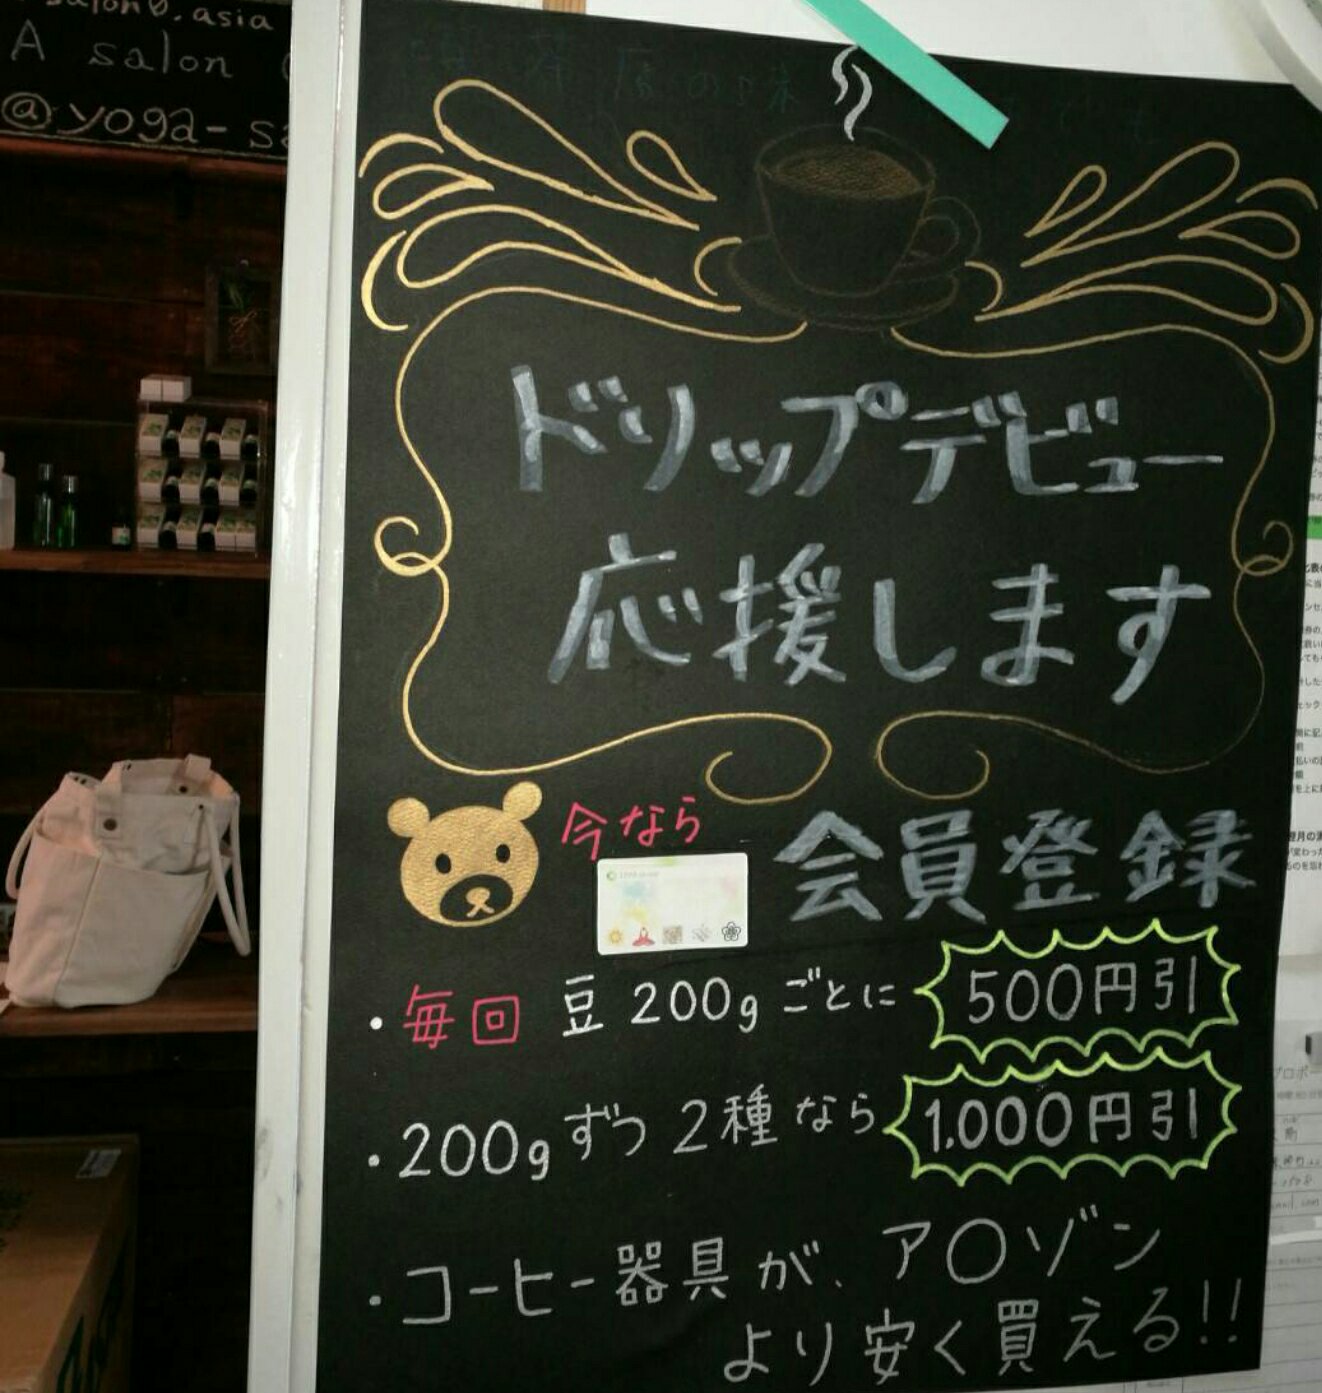 A salon
@yoga-s
ドリップデビュー
応援します
今なら
会員登録
・毎回 豆 200g ごとに 500円引
・200gずつ 2種 なら 1.000円引
・コーヒー器具が、ア〇ゾン
より安く買える!!